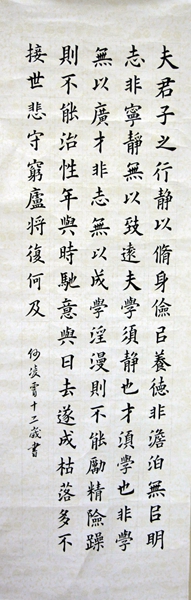 夫君子之行静以脩身儉㠯養德非澹泊無㠯明
志非寧靜無以致遠夫學須靜也才須學也非學
無以廣才非志無以成學淫漫則不能勵精險躁
則不能治性年與時馳意與日去遂成枯落多不
接世悲守窮廬將復何及
何凌霄十二歲書